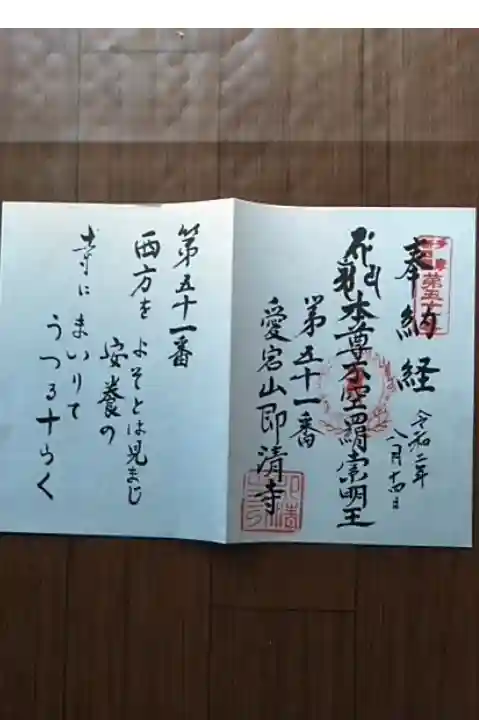 奉納経
令和二年
八月十四日
本尊不空羂索明王
第五十一番
愛宕山即清寺
第五十一番
西方を
よそとは見まじ
安養の
寺にまいりて
うつる十らく